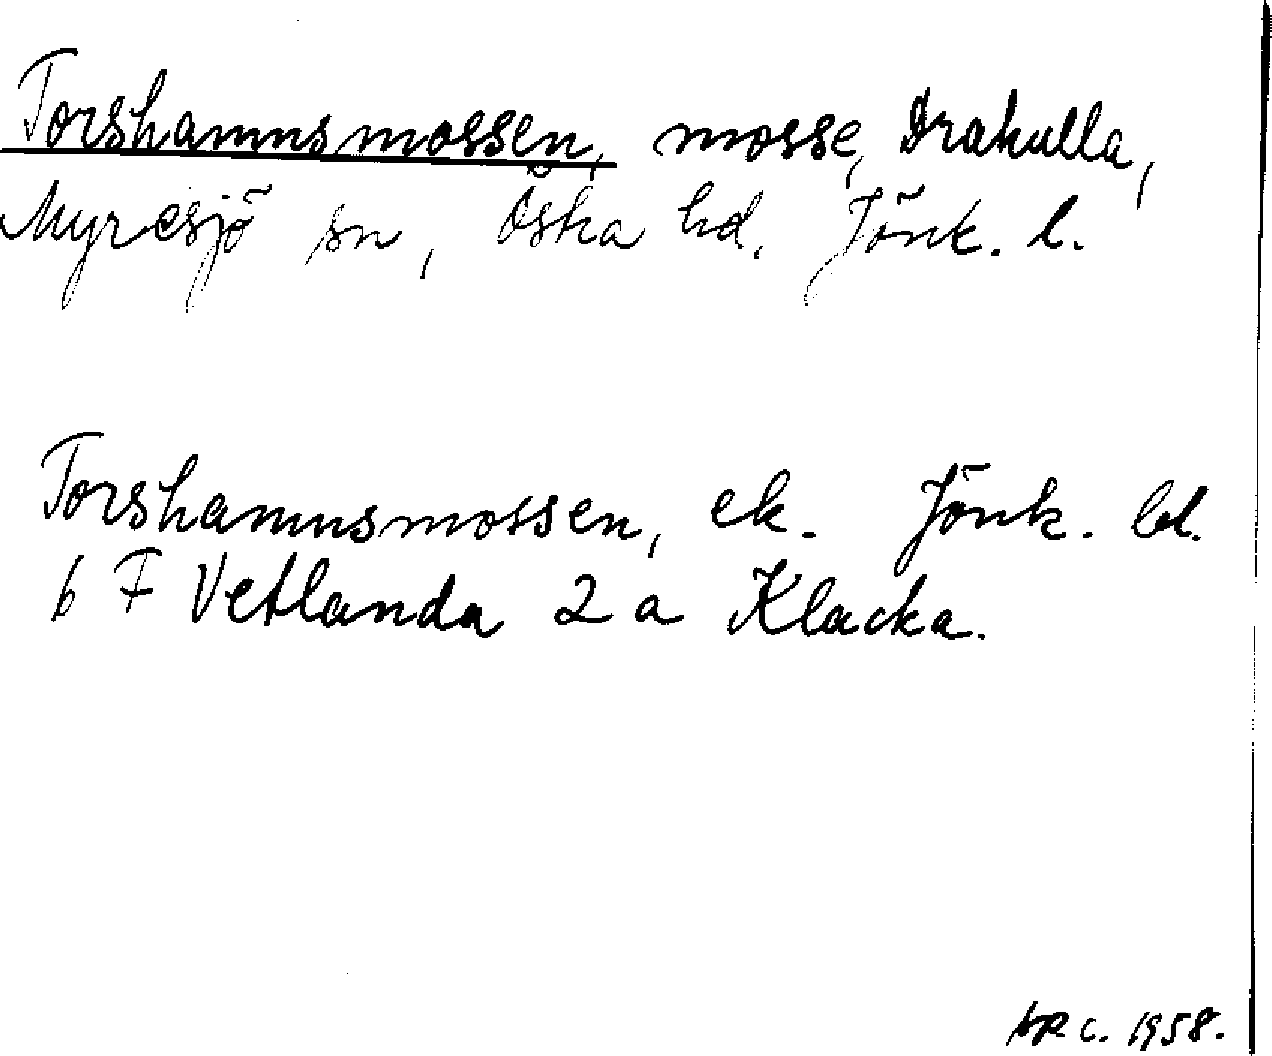 Torshamnsmossen, mosse, Drakulla,
Myresjö sn, Öska hd. Jönk. l.
Torshamnsmossen, ek. Jönk. bl.
6 F Vetlanda 2 a Klacka.
c. 1958.